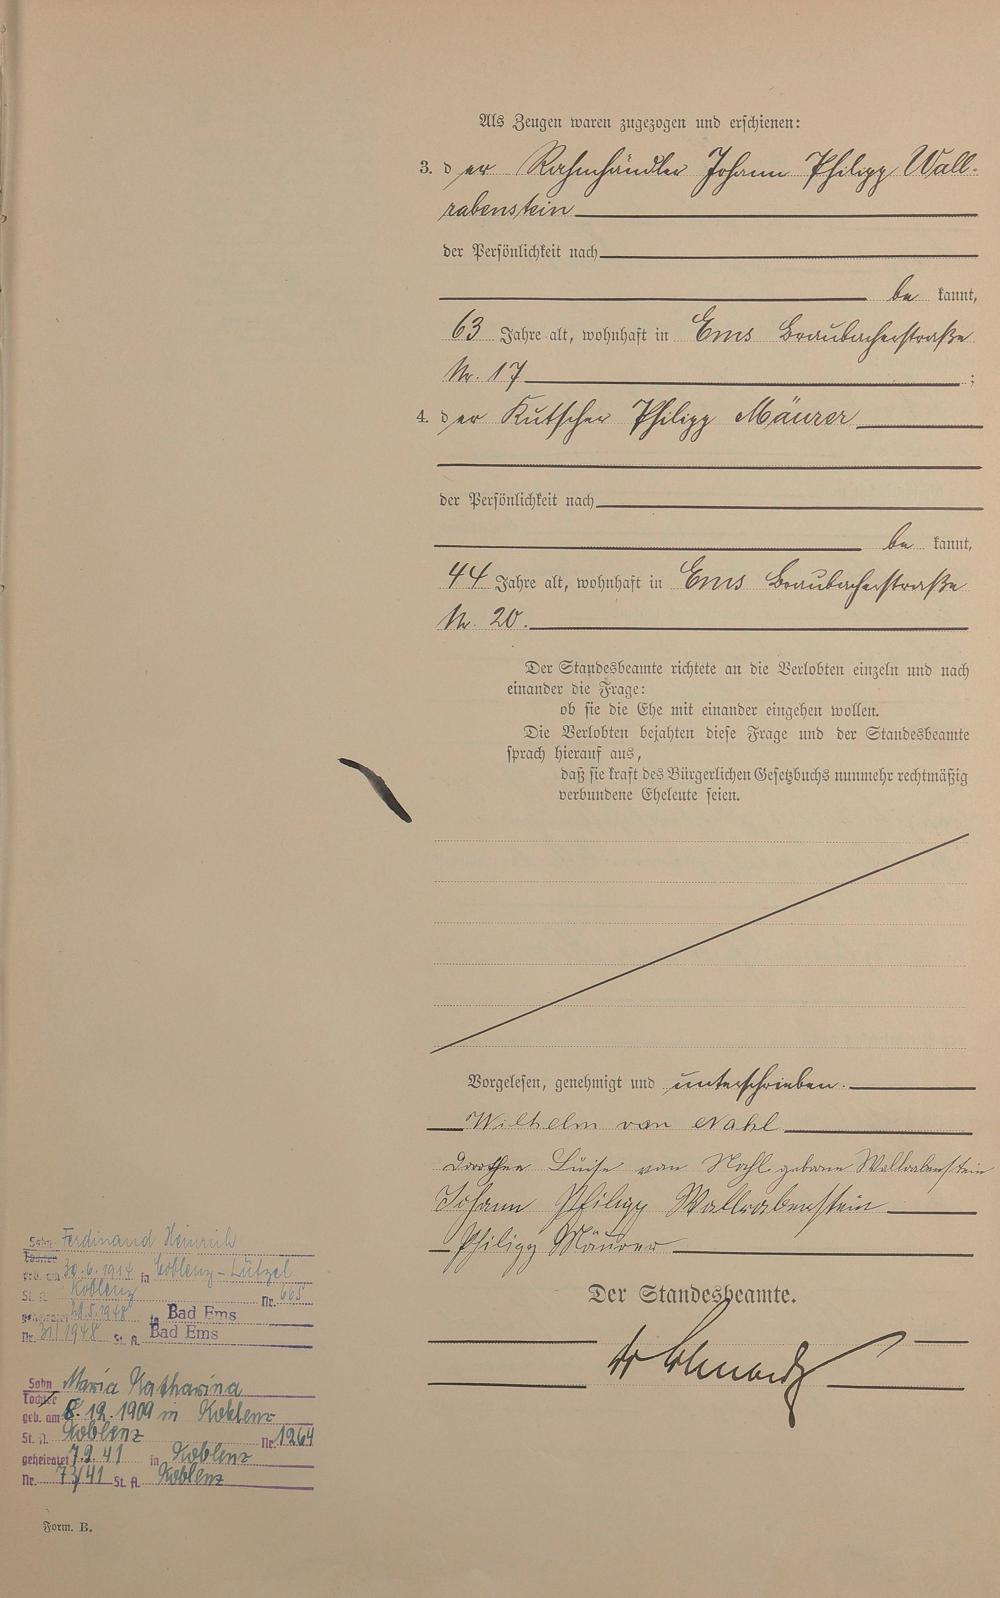 Als Zeugen waren zugezogen und erschienen:
3. der Rahmhändler Johann Philipp Wall-
rabenstein
der Persönlichkeit nach
be kannt,
63 Jahre alt, wohnhaft in Ems Braubacherstraße
Nr. 17 ;
4. der Kutscher Philipp Mäurer
der Persönlichkeit nach
be kannt,
44 Jahre alt, wohnhaft in Ems Braubacherstraße
Nr. 20.
Der Standesbeamte richtete an die Verlobten einzeln und nach
einander die Frage:
ob sie die Ehe mit einander eingehen wollen.
Die Verlobten bejahten diese Frage und der Standesbeamte
sprach hierauf aus,
daß sie kraft des Bürgerlichen Gesetzbuchs nunmehr rechtmäßig
verbundene Eheleute seien.
Vorgelesen, genehmigt und unterschrieben.
Wilhelm van Nahl
Dorothea Luise van Nahl geborene Wallrabenstein
Johann Philipp Wallrabenstein
Philipp Mäurer
Der Standesbeamte.
Sohn Ferdinand Heinrich
Tochter
geb. am 30.6.1914 in Coblenz-Lützel
St. A. Koblenz Nr. 665
geheiratet 29.5.1948 in Bad Ems
Nr. 31/1948 St. A. Bad Ems
Sohn Maria Katharina
Tochter
geb. am 8.12.1909 in Koblenz
St. A. Koblenz Nr. 1264
geheiratet 7.2.41 in Koblenz
Nr. 73/41 St. A. Koblenz
Form. B.